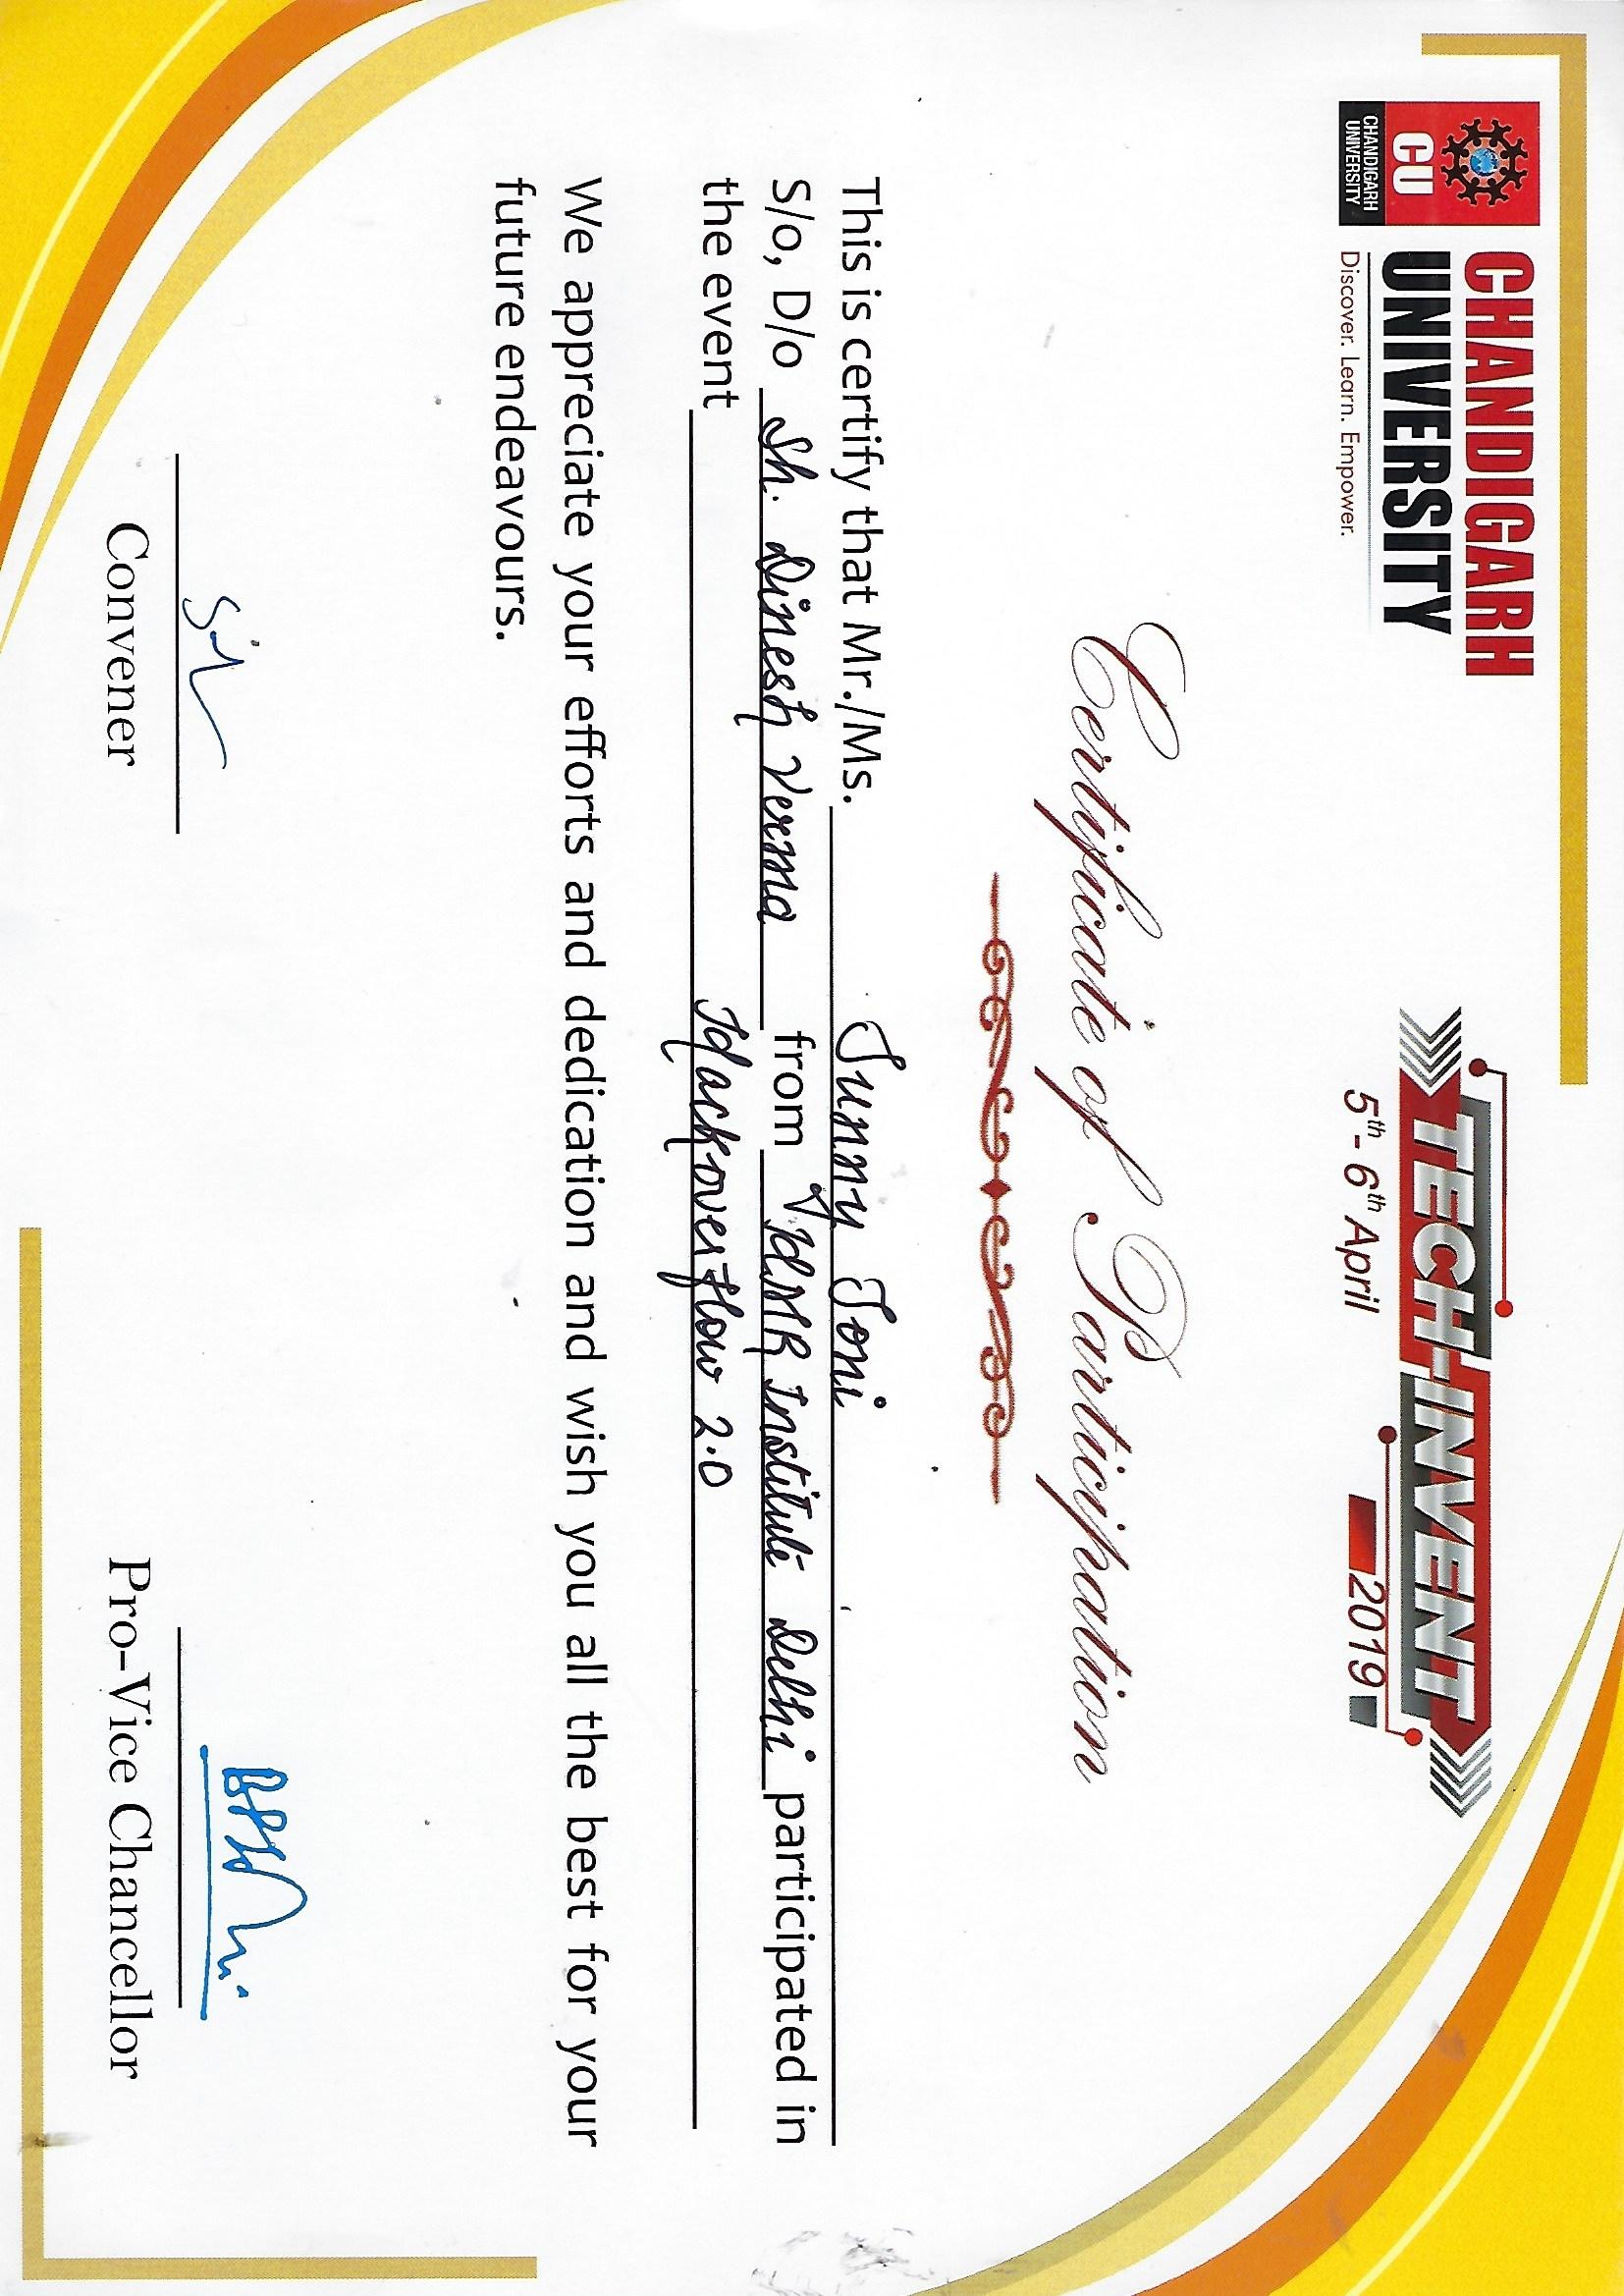 CU
CHANDIGARH
UNIVERSITY
CHANDIGARH
UNIVERSITY
Discover. Learn. Empower.
TECH-INVENT
5th - 6th April 2019
Certificate of Participation
This is certify that Mr./Ms. Sunny Soni
S/o, D/o Sh. Dinesh Verma from HMR Institute Delhi participated in
the event Hackoverflow 2.0
We appreciate your efforts and dedication and wish you all the best for your
future endeavours.
Convener
Pro-Vice Chancellor